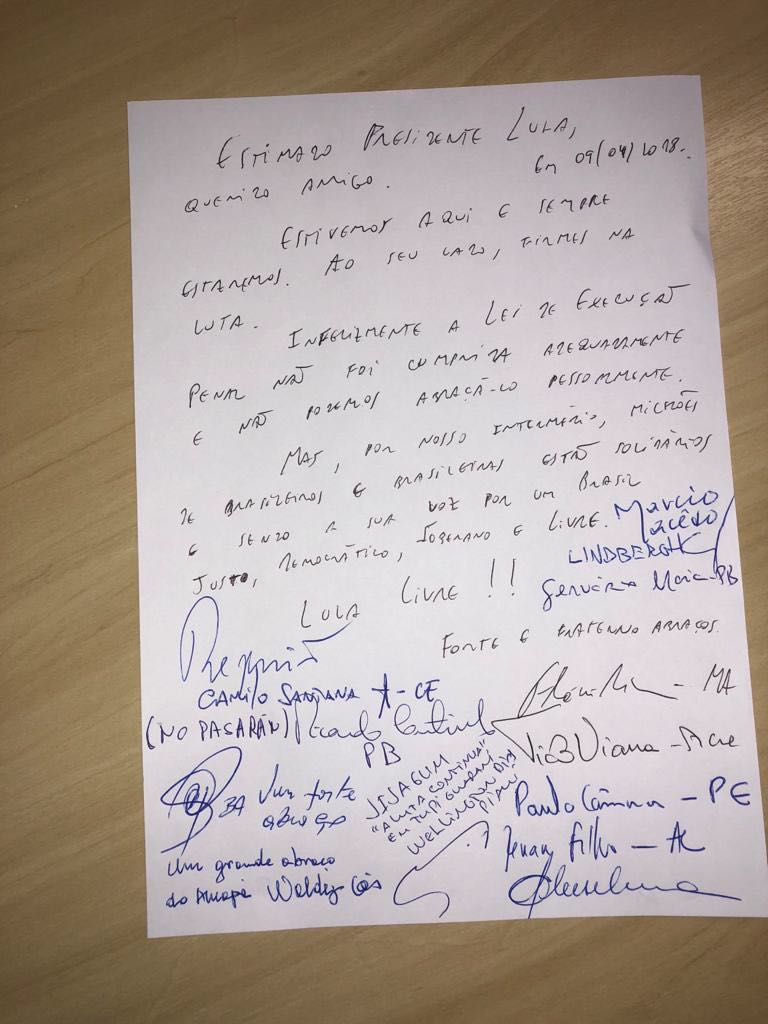 ESTIMADO PRESIDENTE LULA,
QUERIDO AMIGO. EM 09/04/2018.
ESTIVEMOS AQUI E SEMPRE
ESTAREMOS. AO SEU LADO, FIRMES NA
LUTA.
INFELIZMENTE A LEI DE EXECUÇÃO
PENAL NÃO FOI CUMPRIDA ADEQUADAMENTE
E NÃO PODEMOS ABRAÇÁ-LO PESSOALMENTE.
MAS, POR NOSSO INTERMÉDIO, MILHÕES
DE BRASILEIROS E BRASILEIRAS ESTÃO SOLIDÁRIOS
E SENDO A SUA VOZ POR UM BRASIL
JUSTO, DEMOCRÁTICO, SOBERANO E LIVRE.
Marcio
Macêdo
LINDBERGH
Gervásio Maia-PB
LULA LIVRE!!
FORTE E FRATERNO ABRAÇOS.
Requião
CAMILO SANTANA - CE
- MA
(NO PASARÁN) Ricardo Coutinho
PB
Tião Viana - Acre
BA Um forte
abraço
JAJAGUM
"A LUTA CONTINUA"
EM TUPI GUARANI
WELLINGTON DIAS
PIAUÍ
Paulo Câmara - PE
Renan Filho - AL
Um grande abraço
do Amapá Waldez Góes